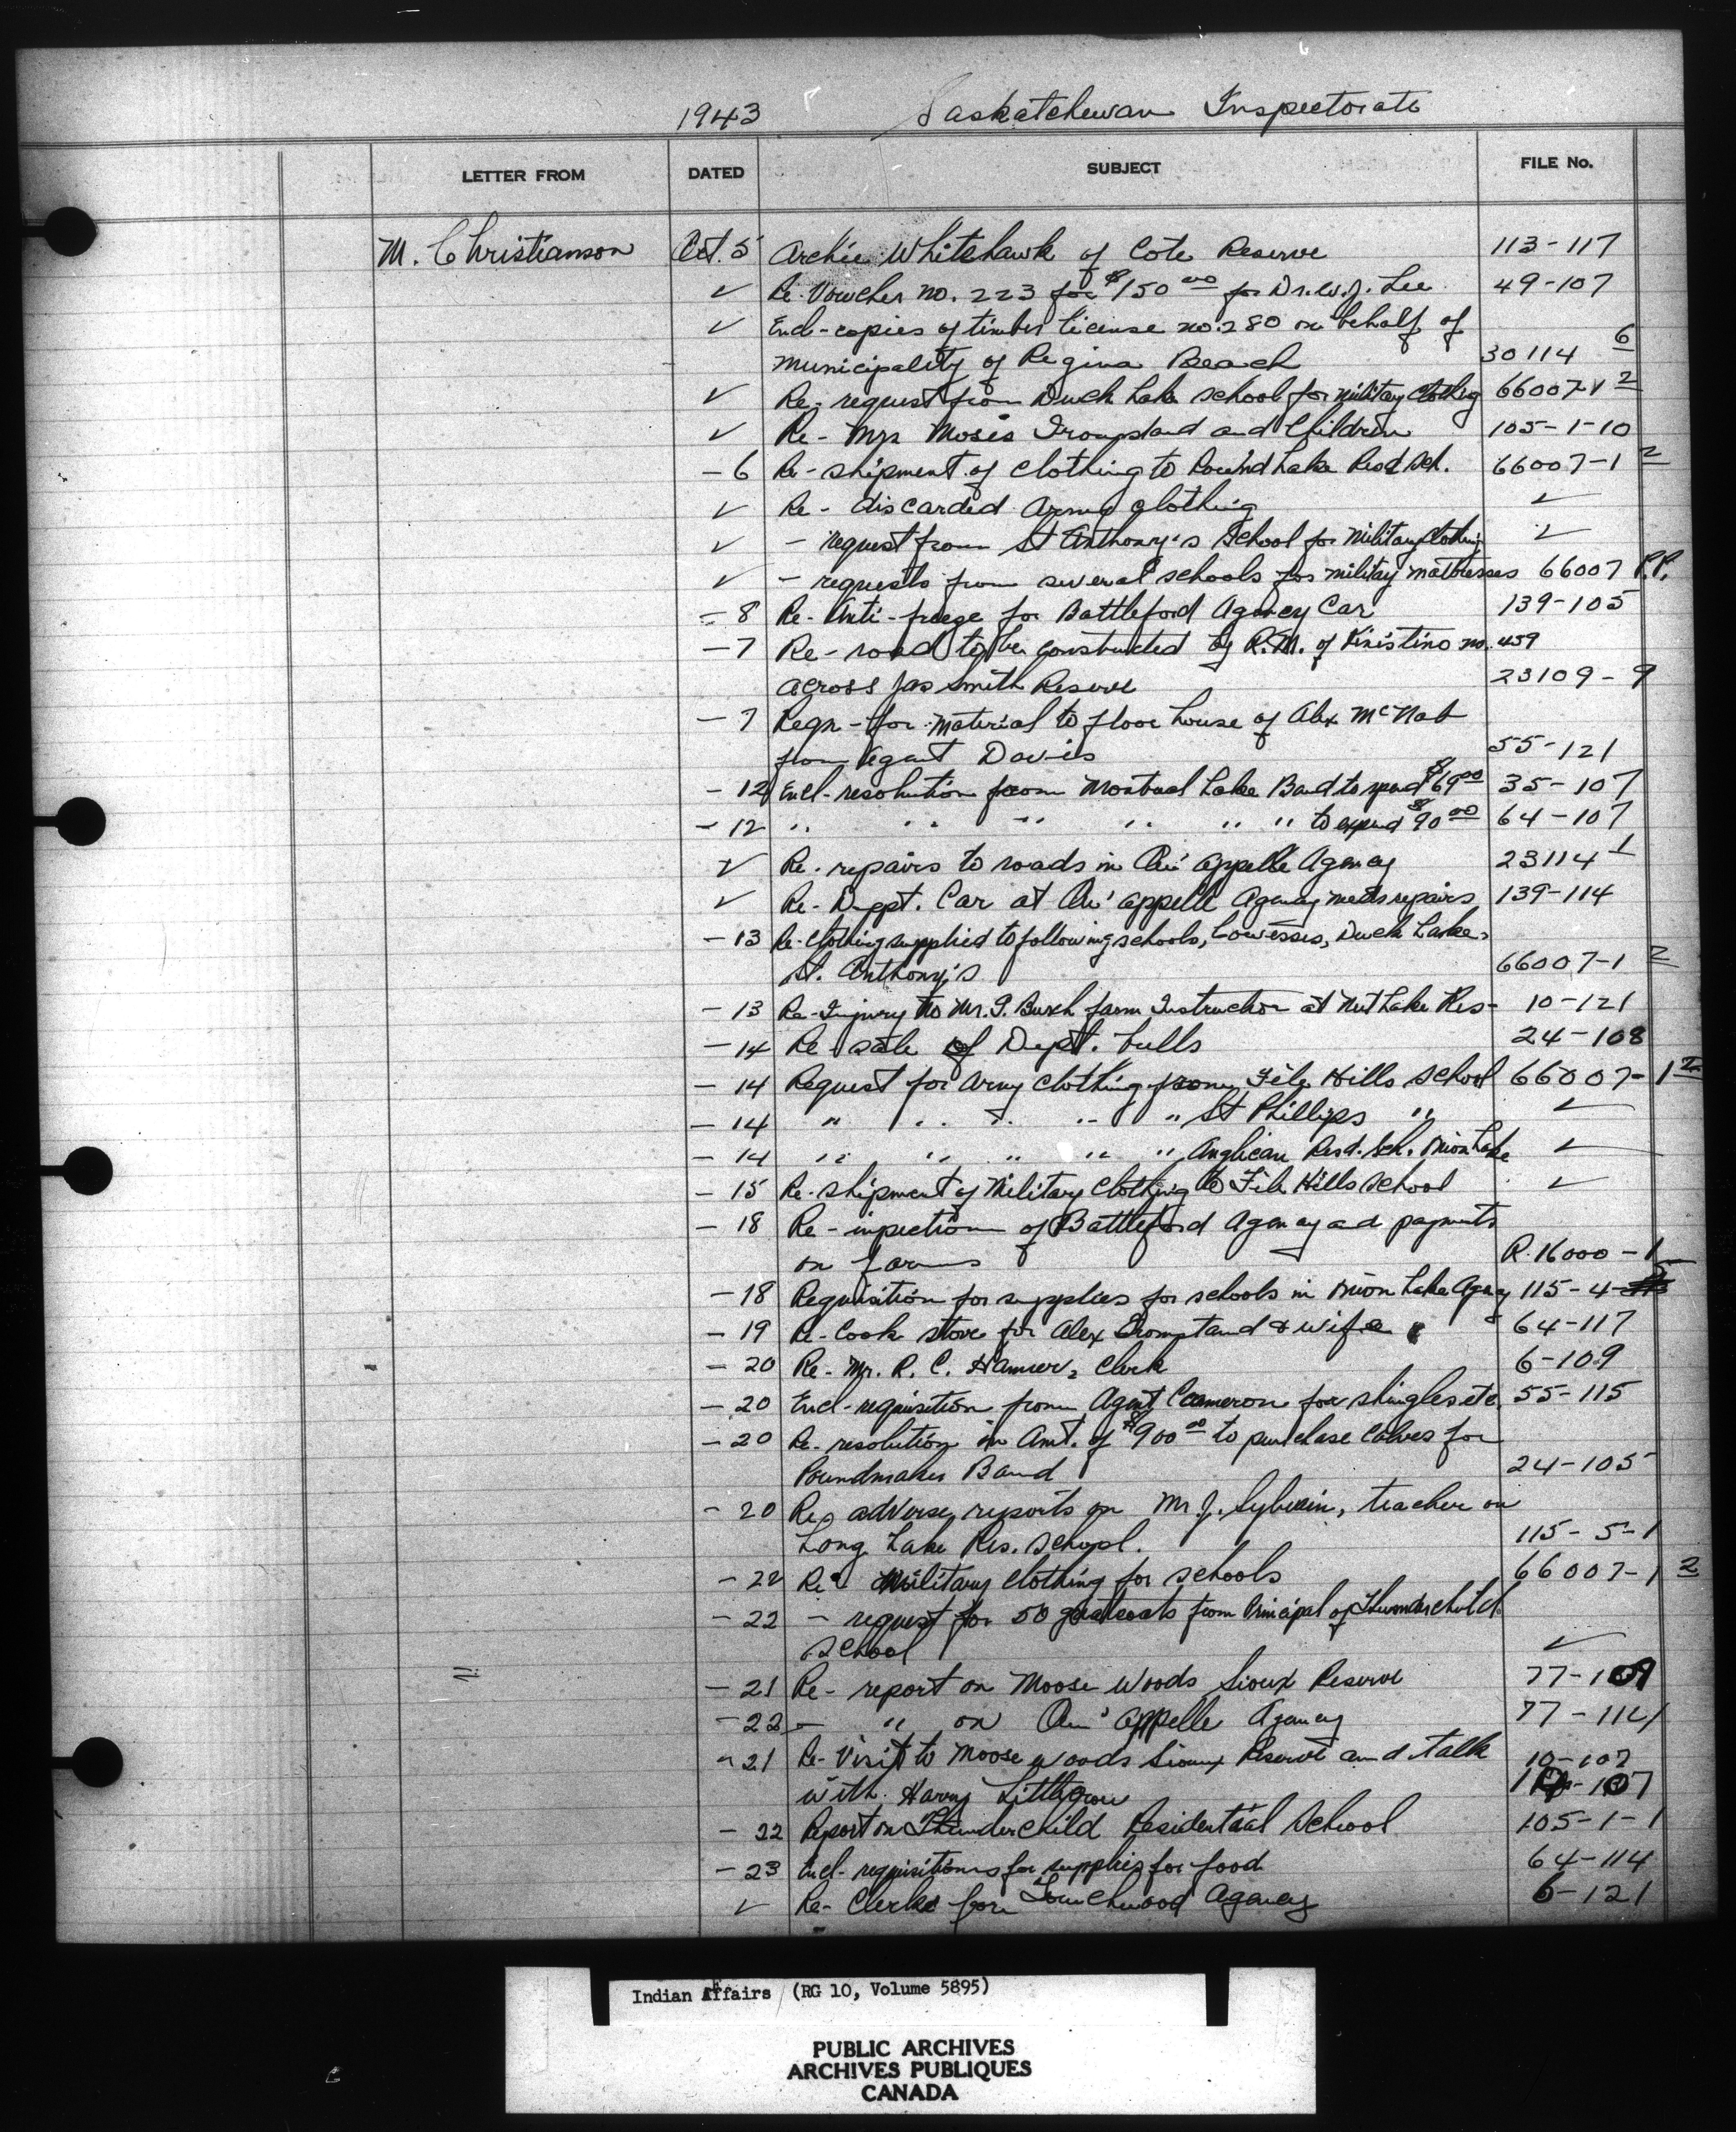 1943 Saskatchewan Inspectorate
LETTER FROM DATED SUBJECT FILE No.
M. Christianson Oct. 5 Archie Whitehawk of Cote Reserve 113-117
✓ Re. Voucher no. 223 for $150 00 for Dr. W. J. Lee 49-107
✓ Encl-copies of timber license no. 280 on behalf of
Municipality of Regina Beach 30114 6
✓ Re- request from Duck Lake School for military clothing 66007-1 2
✓ Re- Mrs Moses and Children 105-1-10
- 6 Re- shipment of clothing to Round Lake Resd Sch. 66007-1 2
✓ Re- discarded Army clothing ✓
✓ - request from St Anthony's School for Military Clothing ✓
✓ - requests from several schools for military mattresses 66007 P.P.
- 8 Re- Anti-freeze for Battleford Agency Car 139-105
- 7 Re- road to be constructed by R.M. of Kinistino no. 459
across Jas Smith Reserve 23109-9
- 7 Reqn- for material to floor house of Alex McNab
from Agent Davis 55-121
- 12 Encl- resolution from Lake Band to spend $69 00 35-107
- 12 " " " " " " to expend $90 00 64-107
✓ Re. repairs to roads in Qu'appelle Agency 23114-1
✓ Re- Dept. Car at Qu'appelle Agency needs repairs 139-114
- 13 Re- clothing supplied to following schools, Cowesses, Duck Lake,
St. Anthony's 66007-1 2
- 13 Re- Injury to Mr. Burch farm Instructor at Nut Lake Res- 10-121
- 14 Re sale of Dept. bulls 24-108
- 14 Request for Army clothing from File Hills School 66007-1 2
- 14 " " " " " St Phillips " ✓
- 14 " " " " " Anglican Resd. Sch. Onion Lake ✓
- 15 Re- shipment of Military Clothing to File Hills School ✓
- 18 Re- inpection of Battleford Agency and payments
on farms R. 16000-1
- 18 Requisition for supplies for schools in Onion Lake Agency 115-4-5
- 19 Re- Cook stove for Alex & wife 64-117
- 20 Re- Mr. R. C. Clerk 6-109
- 20 Encl- requisition from Agent Cameron for shingles etc. 55-115
- 20 Re- resolution in Amt. of $900 00 to purchase Calves for
Poundmaker Band 24-105
- 20 Re adverse reports on Mr. J. Sylvain, teacher on
Long Lake Res. School. 115-5-1
- 22 Re- Military Clothing for schools 66007-1 2
- 22 - request for 50 greatcoats from Principal of Thunderchild
School ✓
- 21 Re- report on Moose Woods Sioux Reserve 77-109
- 22 - " on Qu'appelle Agency 77-114
- 21 Re- Visit to Moose Woods Sioux Reserve and talk 10-107
with Harry Littlecrow
- 22 Report on Thunderchild Residential School 105-1-1
- 23 Encl- requisitions for supplies for food 64-114
✓ Re- Clerk for Touchwood Agency 6-121
Indian Affairs (RG 10, Volume 5895)
PUBLIC ARCHIVES
ARCHIVES PUBLIQUES
CANADA